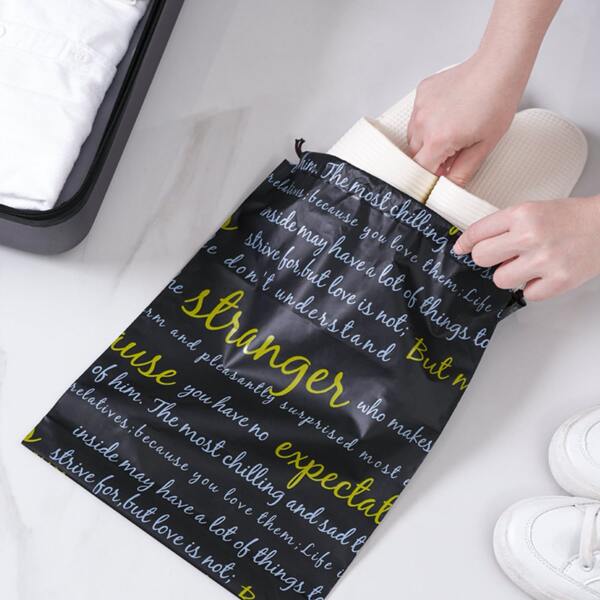 him. The most chilling
relatives; because you love them; Life
inside may have a lot of things to
strive for, but love is not;
don't understand But
stranger who makes
and pleasantly surprised most
cause you have no expectat
of him. The most chilling and sad t
relatives; because you love them; Life i
inside may have a lot of things to
strive for, but love is not;